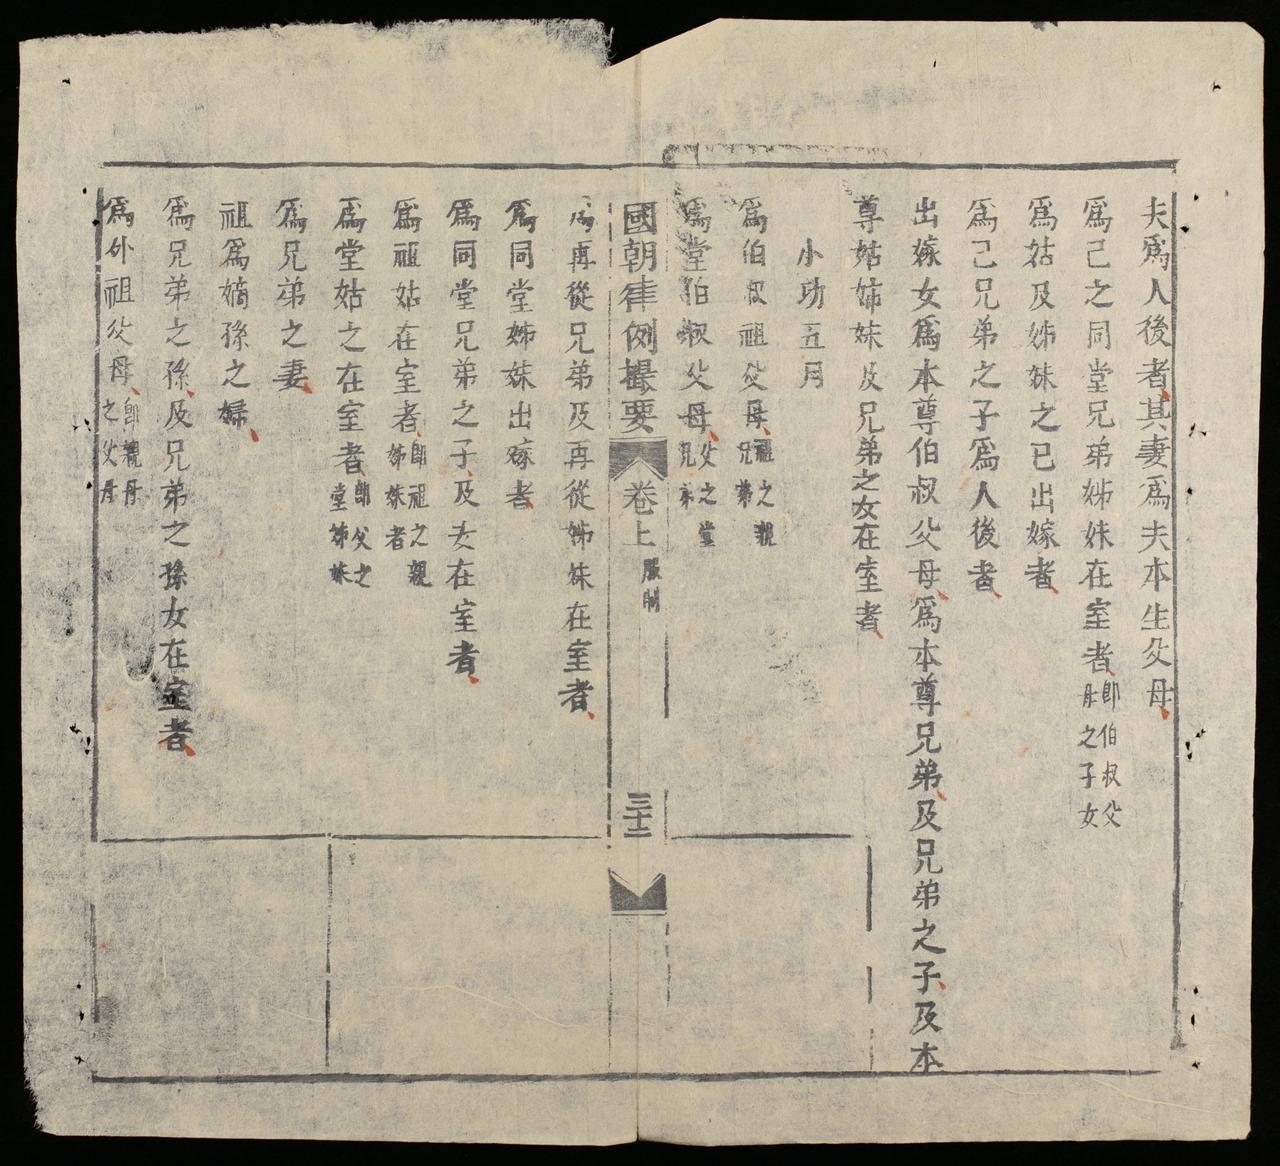 夫爲人後者其妻爲夫本生父母
爲己之同堂兄弟姊妹在室者即伯叔父母之子女
爲姑及姊妹之已出嫁者
爲己兄弟之子爲人後者
出嫁女爲本尊伯叔父母爲本尊兄弟及兄弟之子及本
尊姑姊妹及兄弟之女在室者
小功五月
爲伯叔祖父母祖之親兄弟
爲堂伯叔父母父之堂兄弟
國朝律例撮要 卷上 服制 三十二
爲再從兄弟及再從姊妹在室者
爲同堂姊妹出嫁者
爲同堂兄弟之子及女在室者
爲祖姑在室者即祖之親姊妹者
爲堂姑之在室者即父之堂姊妹
爲兄弟之妻
祖爲嫡孫之婦
爲兄弟之孫及兄弟之孫女在室者
爲外祖父母即親母之父母